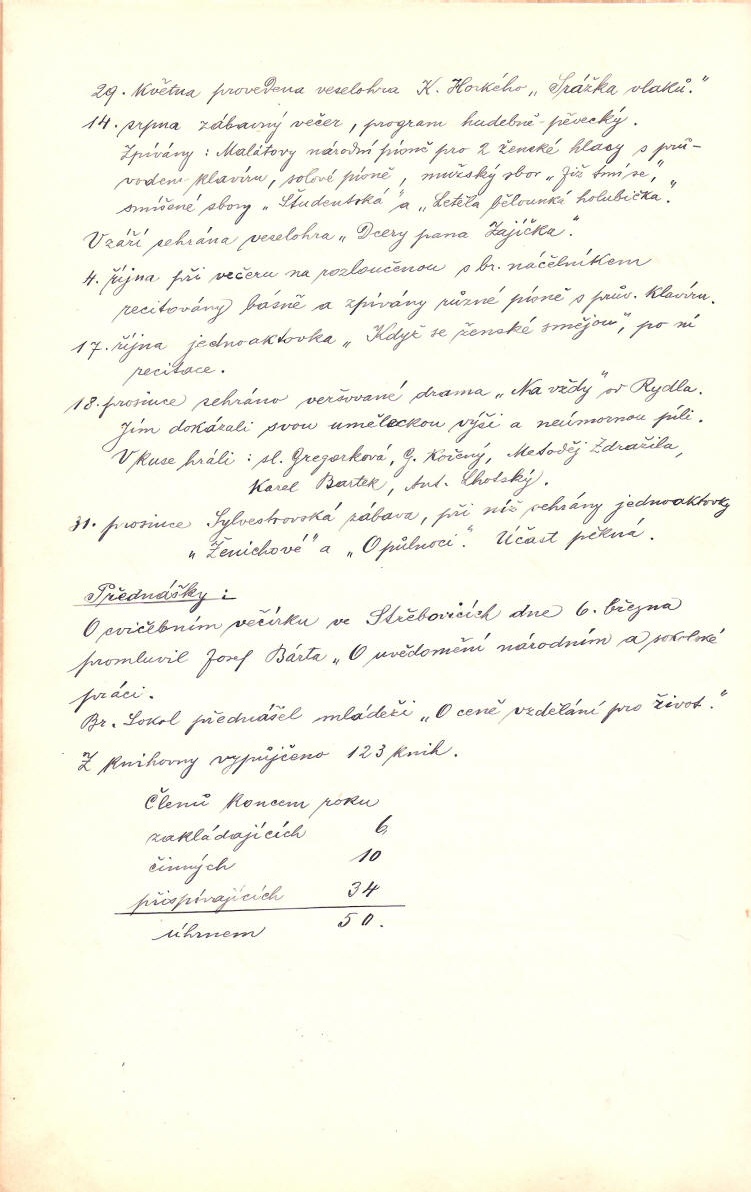 29. Května provedena veselohra K. Horkého „Srážka vlaků."
14. srpna zábavný večer, program hudebně-pěvecký.
Zpívány: Malátovy národní písně pro 2 ženské hlasy s prů-
vodem klavíru, solové písně, mužský sbor „Již tmí se",
smíšené sbory „Študentská" a „Letěla bělounká holubička."
V září sehrána veselohra „Dcery pana Zajíčka".
4. října při večeru na rozloučenou s br. náčelníkem
recitovány básně a zpívány různé písně s prův. klavíru.
17. října jednoaktovka „Když se ženské smějou", po ní
recitace.
18. prosince sehráno veršované drama „Na vždy" od Rydla.
Jím dokázali svou uměleckou výši a neúmornou píli.
V kuse hráli: sl. Gregorková, G. Kořený, Metoděj Zdražila,
Karel Bartek, Ant. Lhotský.
31. prosince Sylvestrovská zábava, při níž sehrány jednoaktovky
„Ženichové" a „O půlnoci." Účast pěkná.
Přednášky:
O cvičebním večírku ve Střebovicích dne 6. března
promluvil Josef Bárta „O uvědomění národním a sokolské
práci.
Br. Sokol přednášel mládeži „O ceně vzdělání pro život."
Z knihovny vypůjčeno 123 knih.
Členů koncem roku
zakládajících 6
činných 10
přispívajících 34
úhrnem 50.